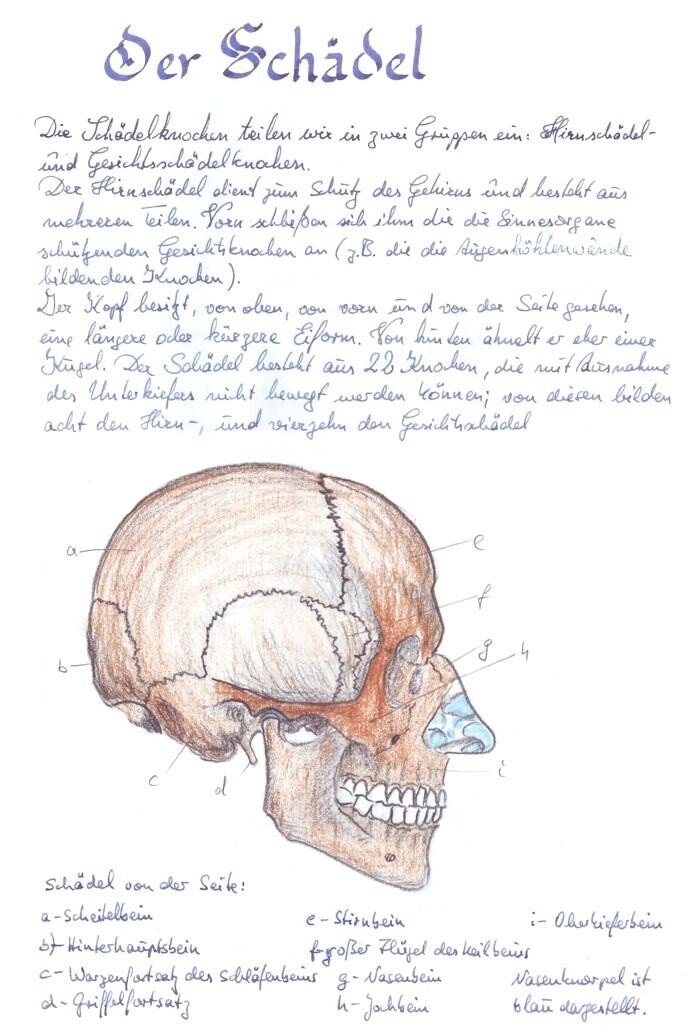 Der Schädel
Die Schädelknochen teilen wir in zwei Gruppen ein: Hirnschädel-
und Gesichtsschädelknochen.
Der Hirnschädel dient zum Schutz des Gehirns und besteht aus
mehreren Teilen. Vorn schließen sich ihm die die Sinnesorgane
schützenden Gesichtsknochen an (z.B. die die Augenhöhlenwände
bildenden Knochen).
Der Kopf besitzt, von oben, von vorn und von der Seite gesehen,
eine längere oder kürzere Eiform. Von hinten ähnelt er eher einer
Kugel. Der Schädel besteht aus 22 Knochen, die mit Ausnahme
des Unterkiefers nicht bewegt werden können; von diesen bilden
acht den Hirn-, und vierzehn den Gesichtschädel
a
e
f
b
g
h
c
d
i
Schädel von der Seite:
a - Scheitelbein
b - Hinterhauptsbein
c - Warzenfortsatz des Schläfenbeins
d - Griffelfortsatz
e - Stirnbein
f - großer Flügel des Keilbeins
g - Nasenbein
h - Jochbein
i - Oberkieferbein
Nasenknorpel ist
blau dargestellt.